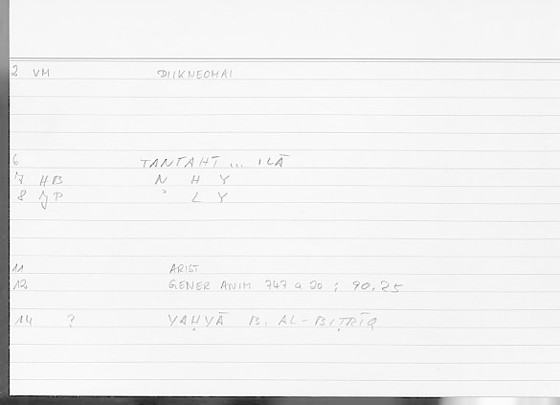 2 VM DIIKNEOMAI
6 TANTAHT ... ILĀ
7 HB N H Y
8 JP ʾ L Y
11 ARIST
12 GENER ANIM 747 a 20 ; 90,25
14 ? YAḤYĀ B. AL-BIṬRĪQ